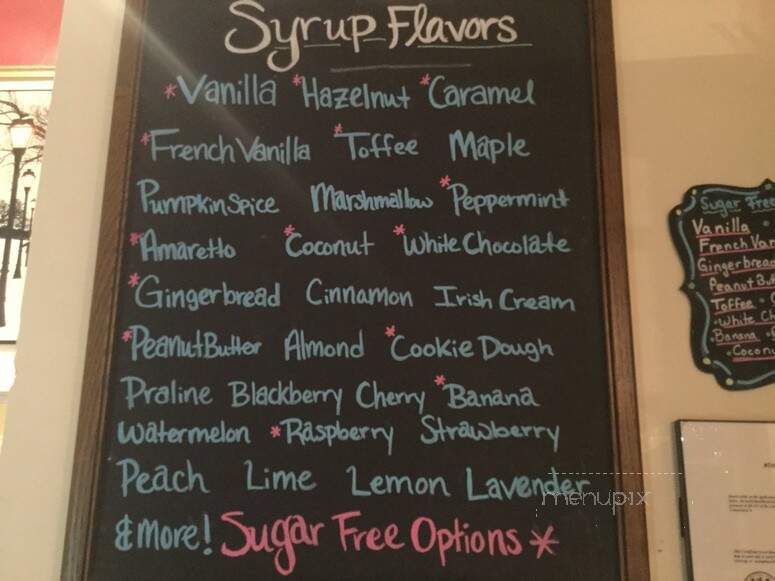 Syrup Flavors
*Vanilla *Hazelnut *Caramel
*French Vanilla *Toffee Maple
Pumpkin Spice Marshmallow *Peppermint
*Amaretto *Coconut *White Chocolate
*Gingerbread Cinnamon Irish Cream
*Peanut Butter Almond *Cookie Dough
Praline Blackberry Cherry *Banana
Watermelon *Raspberry Strawberry
Peach Lime Lemon Lavender
& more! Sugar Free Options *
menupix
Sugar Free
Vanilla
French Van
Gingerbread
Peanut But
Toffee
White Ch
Banana
Coconu